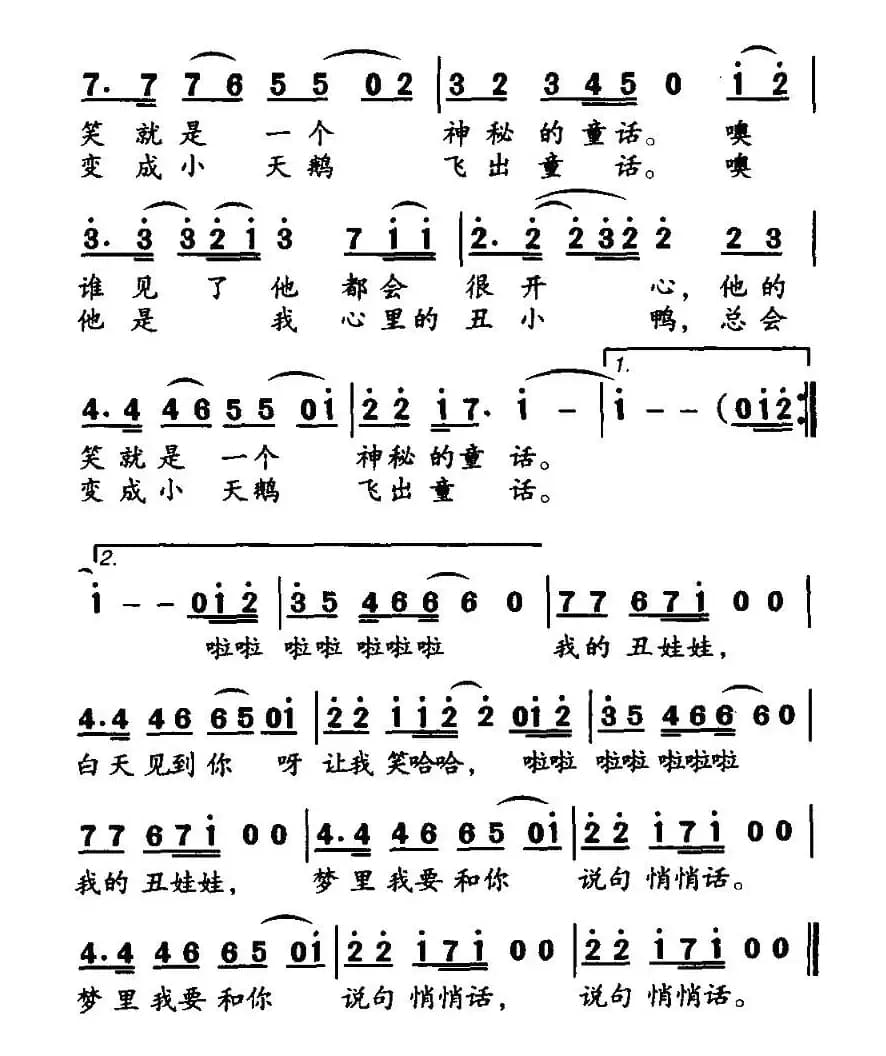 7. 7 7 6 5 5 0 2 | 3 2 3 4 5 0 1 2 |
笑就是 一个 神秘的童话。 噢
变成小 天鹅 飞出童话。 噢
3. 3 3 2 1 3 7 1 1 | 2. 2 2 3 2 2 2 3 |
谁见了他都会很开心，他的
他是我心里的丑小鸭，总会
4. 4 4 6 5 5 0 1 | 2 2 1 7. 1 - | 1. 1 - - (0 1 2 :|
笑就是 一个 神秘的童话。
变成小 天鹅 飞出童话。
2.
1 - - 0 1 2 | 3 5 4 6 6 6 0 | 7 7 6 7 1 0 0 |
啦啦 啦啦 啦啦啦 我的丑娃娃，
4. 4 4 6 6 5 0 1 | 2 2 1 1 2 2 0 1 2 | 3 5 4 6 6 6 0 |
白天见到你 呀让我笑哈哈， 啦啦 啦啦 啦啦啦
7 7 6 7 1 0 0 | 4. 4 4 6 6 5 0 1 | 2 2 1 7 1 0 0 |
我的丑娃娃， 梦里我要和你 说句悄悄话。
4. 4 4 6 6 5 0 1 | 2 2 1 7 1 0 0 | 2 2 1 7 1 0 0 ‖
梦里我要和你 说句悄悄话， 说句悄悄话。